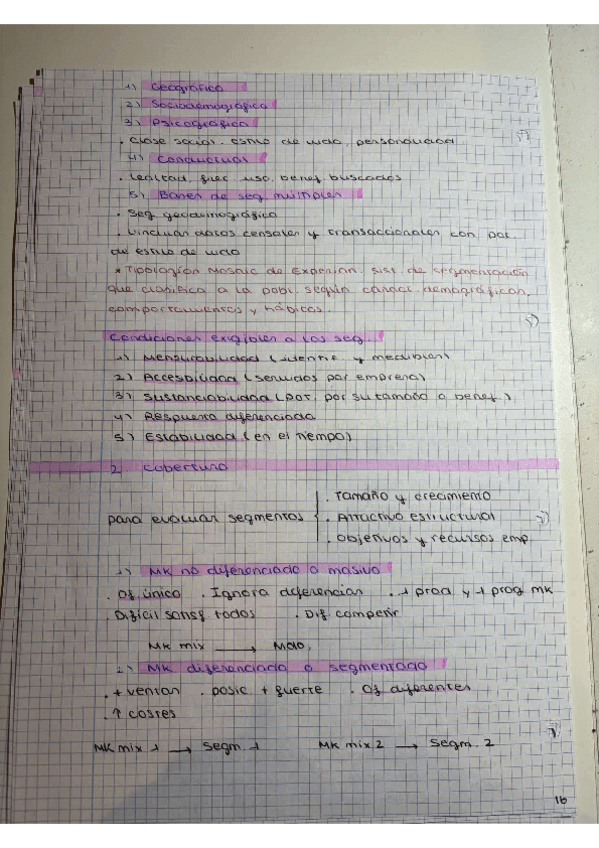 1) Geográfico
2) Sociodemográfica
3) Psicográfica
. Clase social, estilo de vida, personalidad
4) Conductual
. Lealtad, frec. uso, benef. buscados
5) Bases de seg. múltiples
. Seg. geodemográfica
. Vincular datos censales y transaccionales con pat.
de estilo de vida
* Tipologías Mosaic de Experian. Sist. de segmentación
que clasifica a la pobl. según caract. demográficas,
comportamientos y hábitos.
Condiciones exigibles a los seg.
1) Mensurabilidad (identif. y medibles)
2) Accesibilidad (servidos por empresa)
3) Sustanciabilidad (pot. por su tamaño o benef.)
4) Respuesta diferenciada
5) Estabilidad (en el tiempo)
2. Cobertura
para evaluar segmentos
. Tamaño y crecimiento
. Atractivo estructural
. Objetivos y recursos emp.
1) MK no diferenciado o masivo
. Of. único . Ignora diferencias . 1 prod y 1 prog mk
. Difícil satisf. todos . Dif. competir
MK mix → Mdo.
2) MK diferenciado o segmentado
. + ventas . posic + fuerte . Of. diferentes
. ↑ costes
MK mix 1 → Segm. 1 MK mix 2 → Segm. 2
16